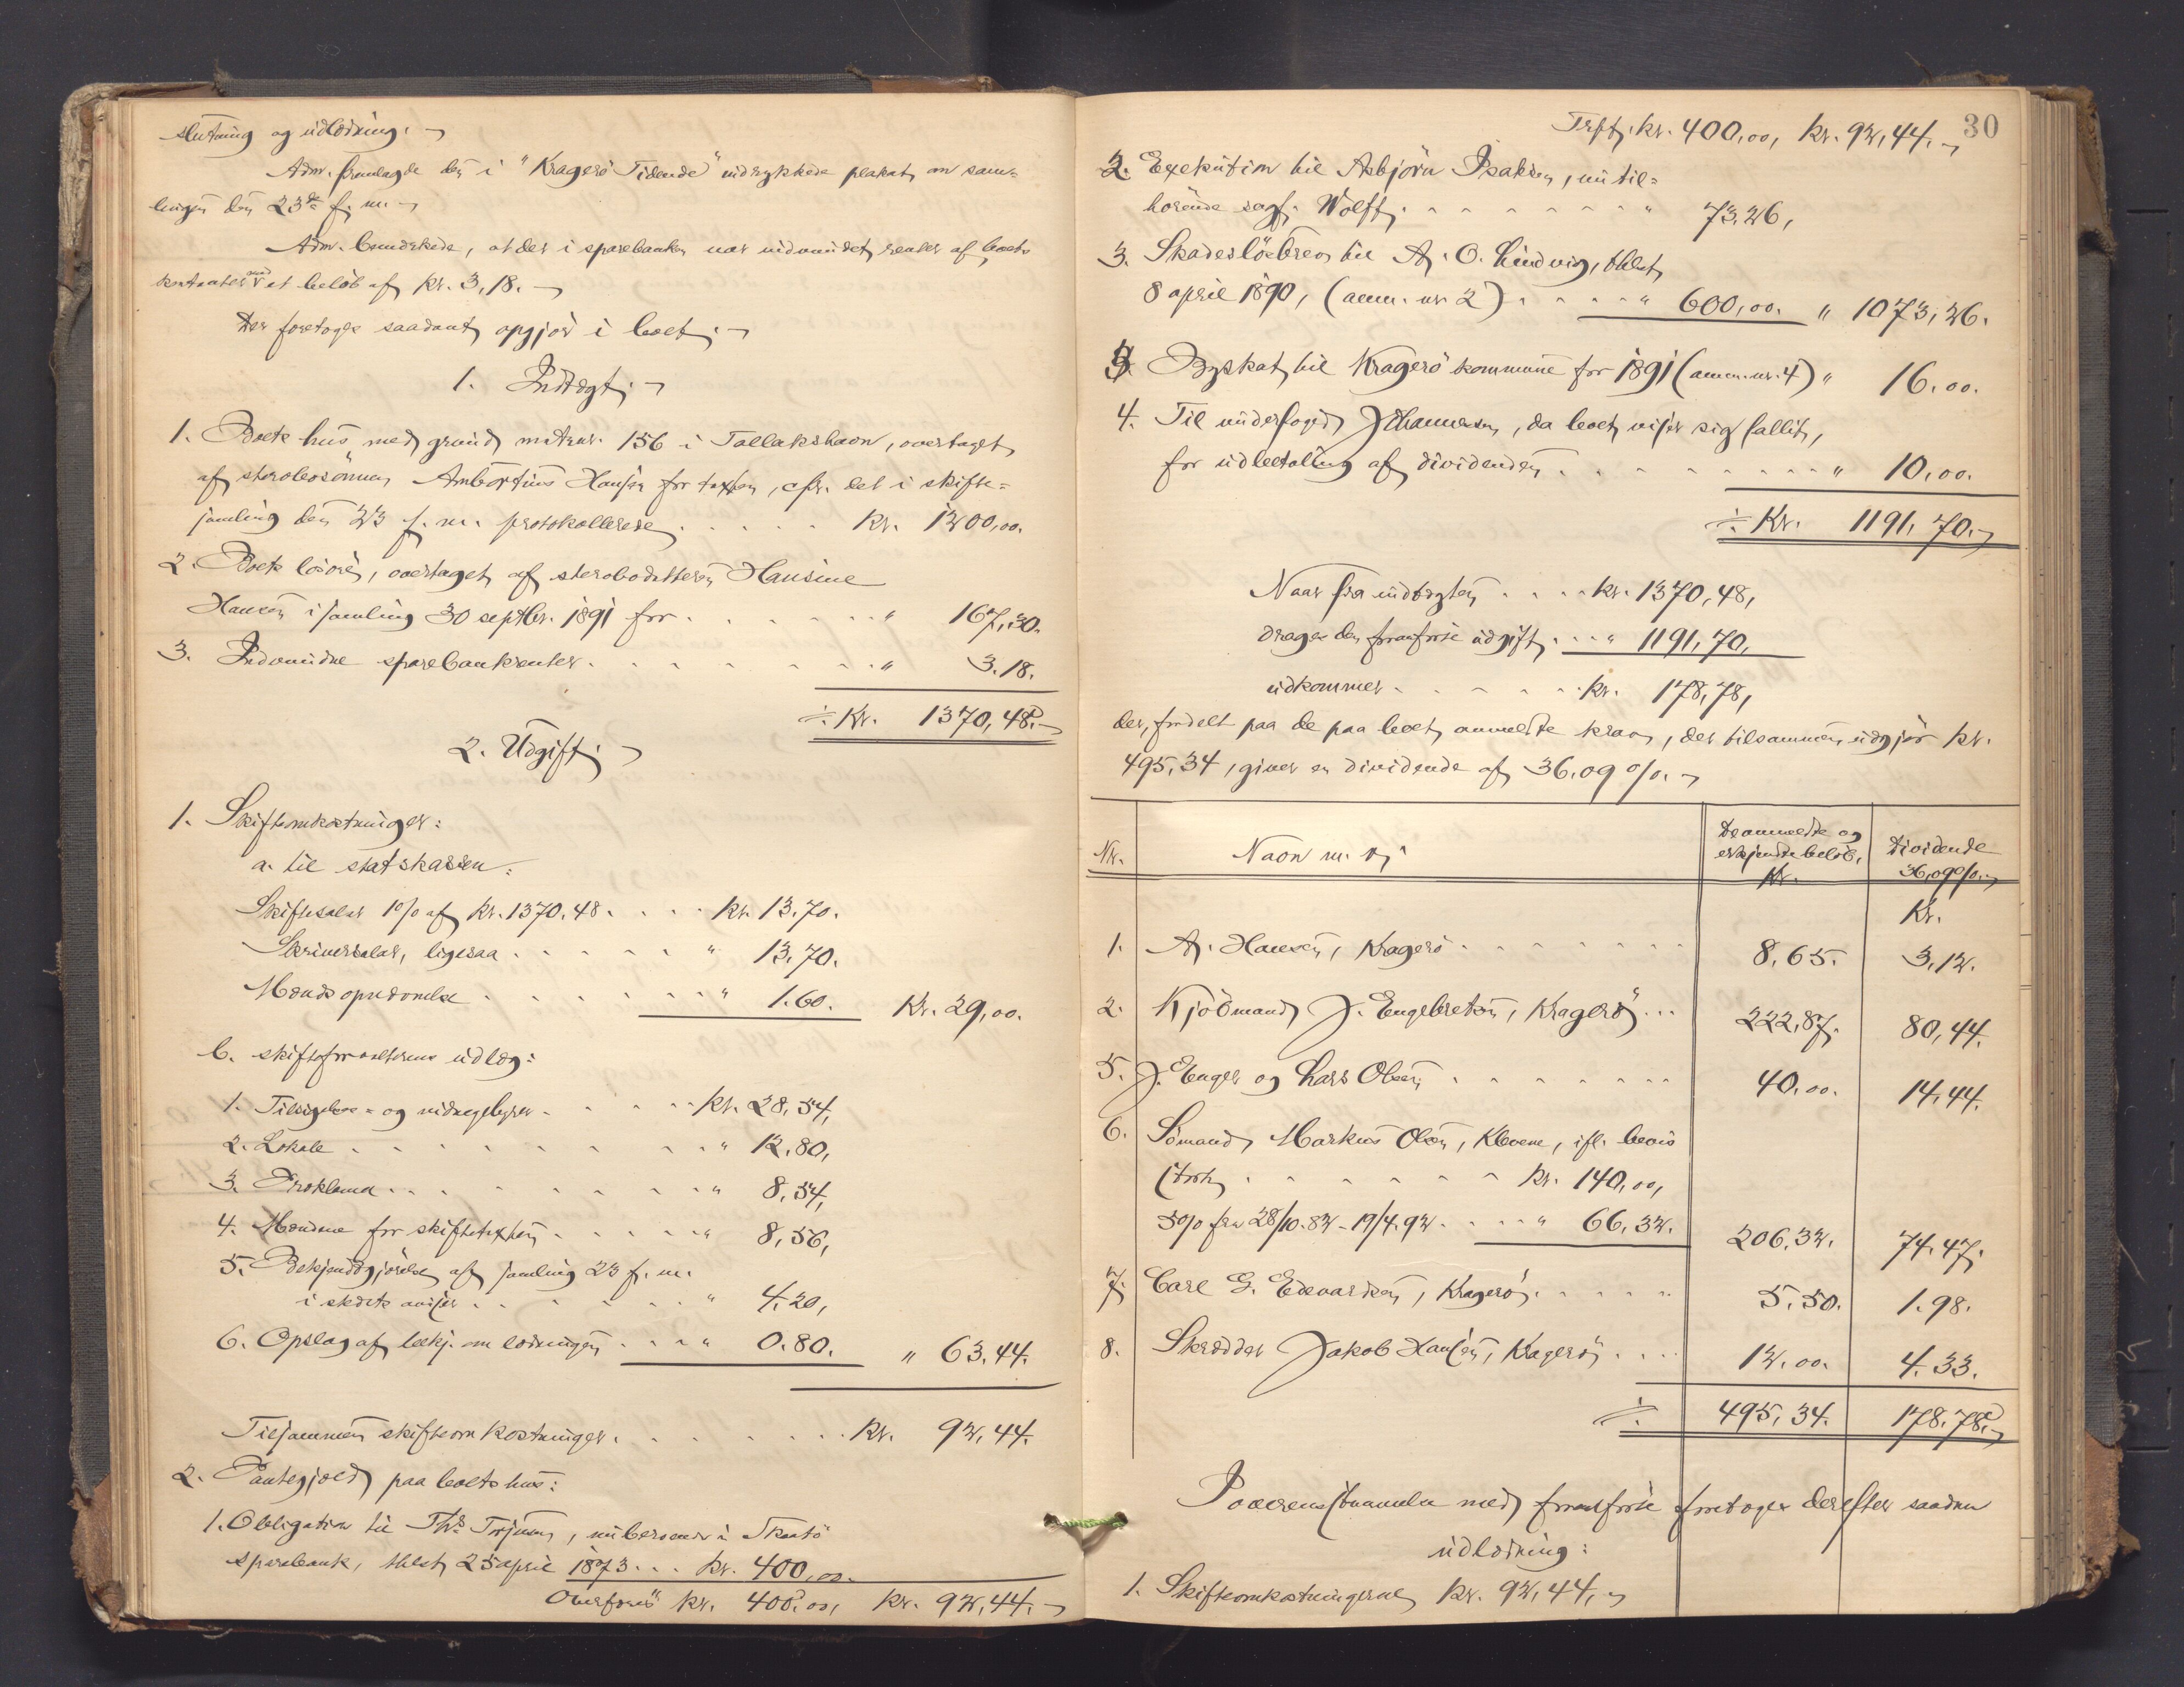 slutning og udlodning.
Adm. fremlagde den i "Kragerø Tidende" indrykkede plakat om sam-
lingen den 23de f. m.
Adm. bemærkede, at der i sparebanken var indvundet renter af boets
kontanter med et beløb af kr. 3,18.
Der foretoges saadant opgjør i boet:
1. Indtægt:
1. Boets hus med grund matrnr. 156 i Tallakshavn, overtaget
af stervbosønnen Ambortius Hansen for taxten, cfr. det i skifte-
samling den 23 f. m. protokollerede . . . . . kr. 1200,00.
2. Boets løsøre, overtaget af stervbodatteren Hansine
Hansen i samling 30 septbr. 1891 for . . . . . . " 167,30.
3. Indvundne sparebankrenter . . . . . . . . " 3.18.
÷ Kr. 1370,48.
2. Udgift:
1. Skifteomkostninger:
a. til statskassen:
Skiftesalær 1% af kr. 1370.48 . . . . kr. 13.70.
Skriversalær, ligesaa . . . . . . " 13.70.
Mænds opnævnelse . . . . . . . " 1.60. Kr. 29,00.
b. skifteforvalterens udlæg:
1. Tilsigelses- og vidnegebyrer . . . . . kr. 28,54,
2. Lokale . . . . . . . . . " 12,80,
3. Proklama . . . . . . . . " 8,54,
4. Mændene for skiftetaxten . . . . . " 8,56,
5. Bekjendtgjørelse af samling 23 f. m.
i stedets aviser . . . . . . . " 4.20,
6. Opslag af bekj. om lodningen . . . " 0.80. " 63.44.
Tilsammen skifteomkostninger . . . . . . . kr. 92,44.
2. Pantegjæld paa boets hus:
1. Obligation til Ths. , nu beroende i Skaatø
sparebank, thlst 25 april 1873 . . . kr. 400,00.
Overføres kr. 400.00, kr. 92,44.
30
Trft. kr. 400,00, kr. 92,44.
2. Exekution til Asbjørn Isaksen, nu til-
hørende sagf. Wolff . . . . . . . . " 73,26,
3. Skadesløsbrev til A. O. Lindvig, thlst
8 april 1890, (anm. nr. 2) . . . . . " 600,00. " 1073,26.
3. Byskat til Kragerø kommune for 1891 (anm. nr. 4) " 16.00.
4. Til underfoged Johannesen, da boet viser sig fallit,
for udbetaling af dividenden . . . . . . . . . " 10,00.
÷ Kr. 1191,70.
Naar fra indtægten . . . . kr. 1370,48,
drages den foranførte udgift . . . " 1191,70,
udkommer . . . . . . kr. 178,78,
der, fordelt paa de paa boet anmeldte krav, der tilsammen udgjør kr.
495,34, giver en dividende af 36.09 %.
Nr. Navn m. v. De anmeldte og erkjendte beløb, Kr. Dividende 36,09%
Kr.
1. A. Hansen, Kragerø . . . . . . . 8,65. 3,12.
2. Kjøbmand J. Engebretsen, Kragerø . . . 222,87. 80,44.
5. J. Enger og Lars Olsen . . . . . . . 40,00. 14,44.
6. Sømand Markus Olsen, Klevene, ifl. bevis
. . . . . . kr. 140,00,
5% fra 28/10.82 - 19/4.92 . . . . " 66,32. 206,32. 74,47.
7. Carl G. Edvardsen, Kragerø . . . . . 5.50. 1.98.
8. Skrædder Jakob Hansen, Kragerø . . . . 12.00. 4.33.
÷ 495,34. 178.78.
I overensstemmelse med foranførte foretoges derefter saadan
udlodning:
1. Skifteomkostningerne kr. 92,44,